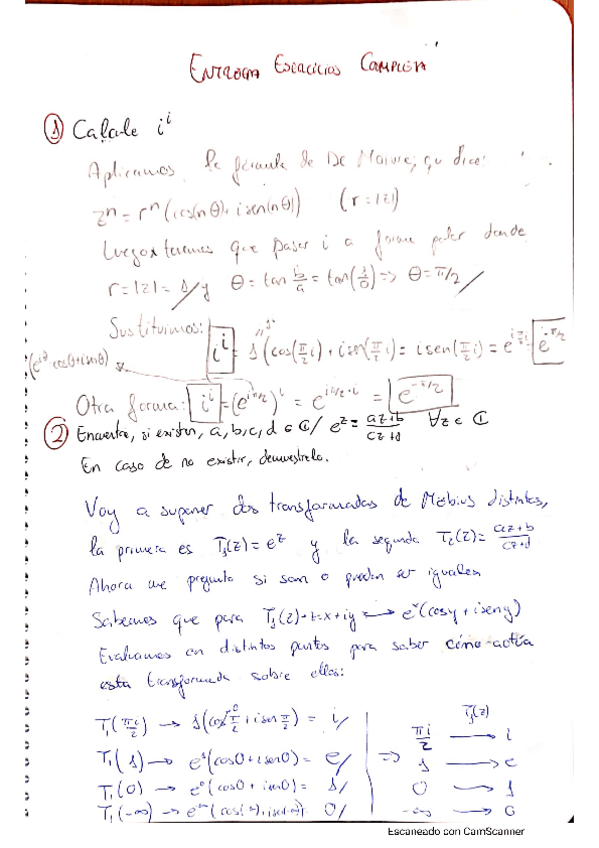 ENTREGA EJERCICIOS COMPLEJA
① Calcule i^i
Aplicamos la fórmula de De Moivre, que dice:
z^n = r^n (cos(nθ) + i sen(nθ)) (r = |z|)
Luego tenemos que pasar i a forma polar donde
r = |z| = 1 / y θ = tan b/a = tan(1/0) => θ = π/2 /
Sustituimos: i^i = 1^i (cos(π/2 i) + i sen(π/2 i)) = i sen(π/2 i) = e^{i π/2 i} = e^{-π/2}
(e^{iθ} = cosθ + i senθ)
Otra forma: i^i = (e^{iπ/2})^i = e^{iπ/2·i} = e^{-π/2}
② Encuentre, si existen, a, b, c, d ∈ ℂ / e^z = az+b / cz+d ∀z ∈ ℂ
En caso de no existir, demuéstrelo.
Voy a suponer dos transformadas de Möbius distintas,
la primera es T₁(z) = e^z y la segunda T₂(z) = az+b / cz+d
Ahora me pregunto si son o pueden ser iguales
Sabemos que para T₁(z) z = x + iy → e^x (cos y + i sen y)
Evaluamos en distintos puntos para saber cómo actúa
esta transformada sobre ellos:
T₁(z)
T₁(πi/2) → 1(cos π/2 + i sen π/2) = i / πi/2 → i
T₁(1) → e^1 (cos0 + i sen0) = e / => 1 → e
T₁(0) → e^0 (cos0 + i sen0) = 1 / 0 → 1
T₁(-∞) → 0 / -∞ → 0
Escaneado con CamScanner